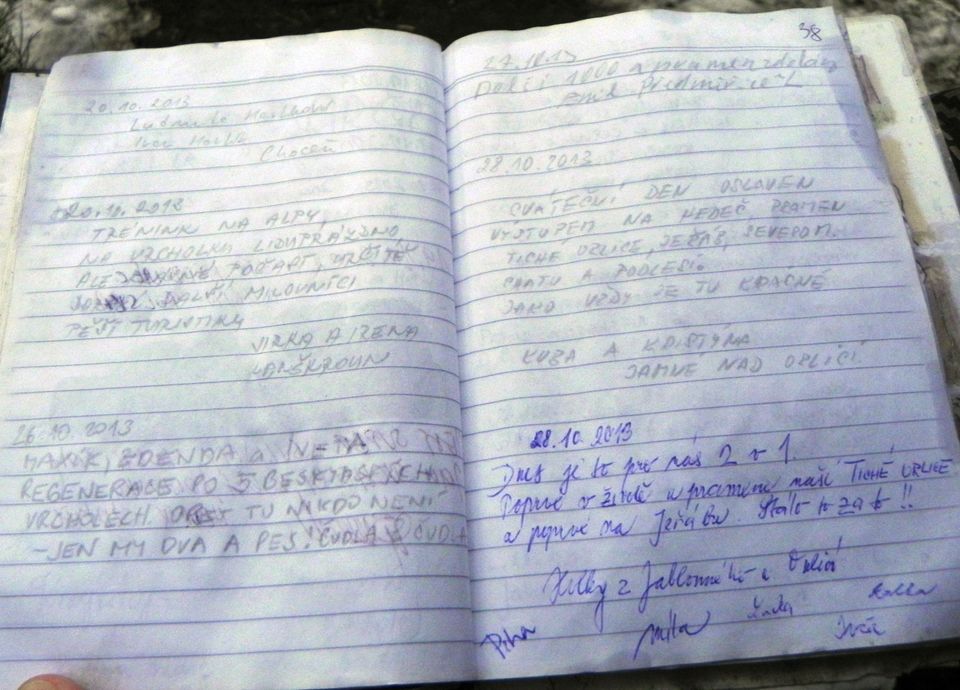 20.10.2013
Ludmila
Choceň
20.10.2013
TRÉNINK NA ALPY,
NA VRCHOLKU LIDUPRÁZDNO
ALE POČASÍ, URČITĚ
DALŠÍ MILOVNÍCI
PĚŠÍ TURISTIKY
JIRKA A IRENA
LANŠKROUN
26.10.2013
MAXÍK, ZDENDA a
REGENERACE PO 5 BESKYDSKÝCH
VRCHOLECH. TU NIKDO NENÍ
- JEN MY DVA A PES! ČUDLA
38
27.10.13
Další 1000 a pramen zdolán
Emil
28.10.2013
SVÁTEČNÍ DEN OSLAVEN
VÝSTUPEM NA HEDEČ, PRAMEN
TICHÉ ORLICE, JEŘÁB, SEVEROM.
CHATU A PODLESÍ.
JAKO VŽDY JE TU KRÁSNĚ
KUBA A KRISTÝNA
JAMNÉ NAD ORLICÍ
28.10.2013
Dnes je to pro nás 2 v 1.
Poprvé v životě u pramene naší TICHÉ ORLICE
a poprvé na Jeřábu. Stálo to za to!!
Holky z Jablonného n Orlicí
Míla Lenka
Iva